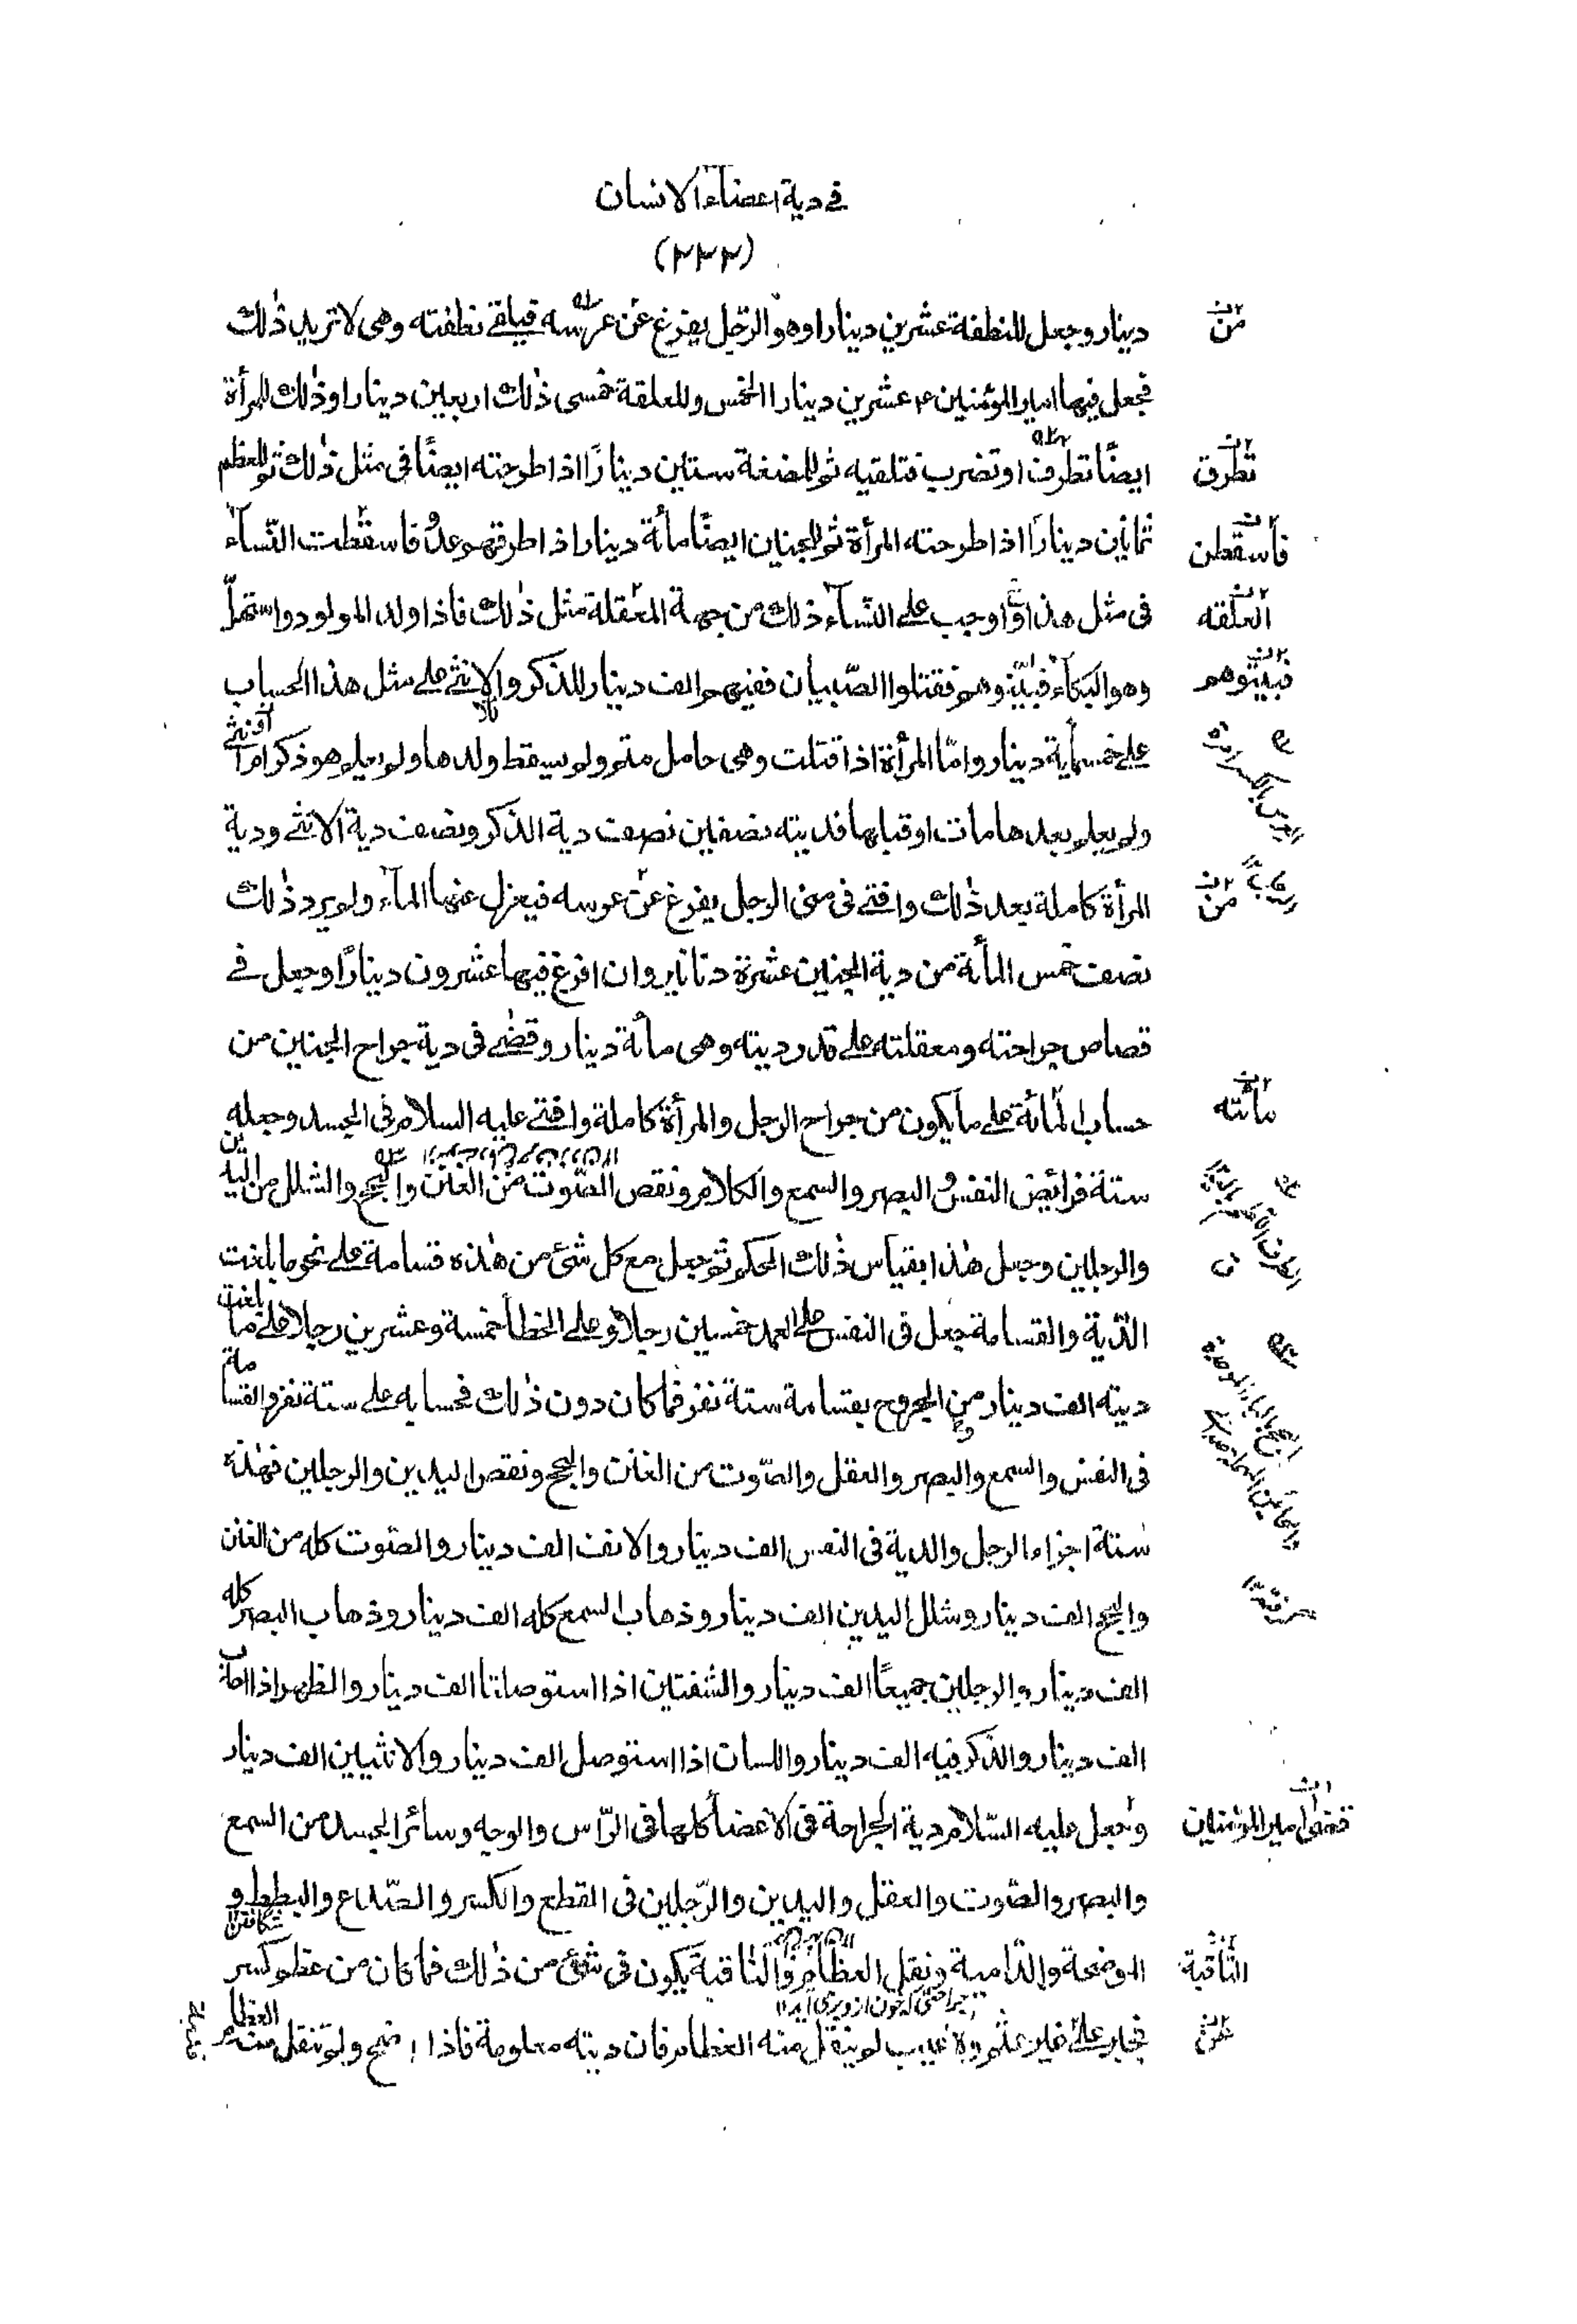 في دية اعضاء الانسان
(٢٢٢)
دينار وجعل للنطفة عشرين دينارا وهو الرجل يفزغ عن عرسه فيلقى نطفته وهى لا تريد ذلك
فجعل فيها امير المؤمنين ع عشرين دينارا الخمس وللعلقة خمسى ذلك اربعين دينارا وذلك للمرأة
ايضًا تطرف او تضرب فتلقيه ثم للمضغة ستين دينارًا اذا طرحته ايضًا فى مثل ذلك ثم للعظم
ثمانين دينارًا اذا طرحته المرأة ثم للجنين ايضًا مائة دينار اذا طرقهم عدو فاسقطت النساء
فى مثل هذا واوجب على النساء ذلك من جهة المعقلة مثل ذلك فاذا ولد المولود واستهل
وهو البكاء فبيتوهم فقتلوا الصبيان ففيهم الف دينار للذكر والانثى على مثل هذا الحساب
على خمسماية دينار واما المرأة اذا قتلت وهى حامل متم ولم يسقط ولدها ولم يعلم هو ذكر ام انثى
ولم يعلم بعدها مات او قبلها فديته نصفين نصف دية الذكر ونصف دية الانثى ودية
المرأة كاملة بعد ذلك وافتى فى منى الرجل يفزغ عن عرسه فيعزل عنها الماء ولم يرد ذلك
نصف خمس المائة من دية الجنين عشرة دنانير وان افرغ فيها عشرون دينارًا وجعل فى
قصاص جراحته ومعقلته على قدر ديته وهى مائة دينار وقضى فى دية جراح الجنين من
حساب المائة على ما يكون من جراح الرجل والمرأة كاملة وافتى عليه السلام فى الجسد وجعله
ستة فرائض النفس والبصر والسمع والكلام ونقص الصوت من الغنن والبحح والشلل من اليدين
والرجلين وجعل هذا بقياس ذلك الحكم ثم جعل مع كل شئ من هذه قسامة على نحو ما بلغت
الدية والقسامة جعل فى النفس على العمد خمسين رجلا وعلى الخطأ خمسة وعشرين رجلا على ما بلغت
ديته الف دينار من الجروح بقسامة ستة نفر فما كان دون ذلك فحسابه على ستة نفر والقسامة
فى النفس والسمع والبصر والعقل والصوت من الغنن والبحح ونقص اليدين والرجلين فهذه
ستة اجزاء الرجل والدية فى النفس الف دينار والانف الف دينار والصوت كله من الغنن
والبحح الف دينار وشلل اليدين الف دينار وذهاب السمع كله الف دينار وذهاب البصر كله
الف دينار والرجلين جميعًا الف دينار والشفتين اذا استوصلتا الف دينار والظهر اذا احدب
الف دينار والذكر فيه الف دينار واللسان اذا استوصل الف دينار والانثيين الف دينار
وجعل عليه السلام دية الجراحة فى الاعضأ كلها فى الرأس والوجه وسائر الجسد من السمع
والبصر والصوت والعقل واليدين والرجلين فى القطع والكسر والصداع والبطط و
الموضحة والدامية ونقل العظام والناقبة يكون فى شئ من ذلك فما كان من عظم كسر
فجبر على غير عثم ولا عيب لم ينقل منه العظام فان ديته معلومة فاذا اوضح ولم تنقل منه العظام
من
تطرق
فاسقطن
العلقه
فبيتوهم
من
مائته
فقضى امير المؤمنين
الثاقبة